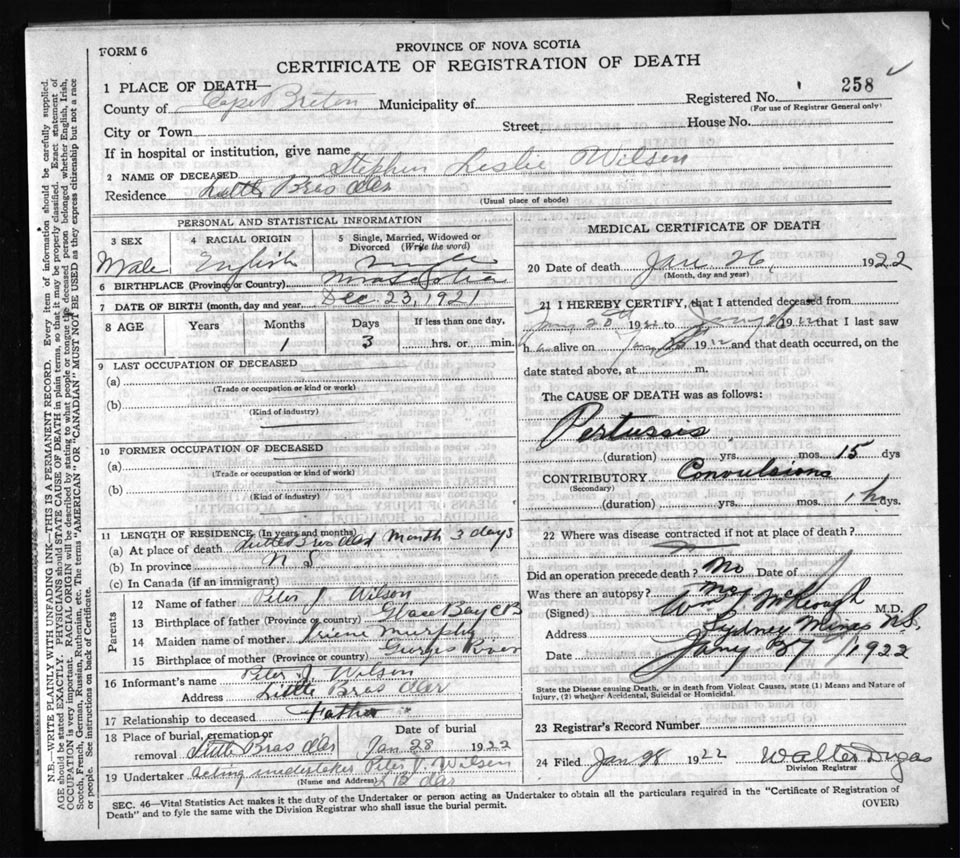 FORM 6
PROVINCE OF NOVA SCOTIA
CERTIFICATE OF REGISTRATION OF DEATH
1 PLACE OF DEATH—
County of Cape Breton Municipality of Registered No. 258
(For use of Registrar General only)
City or Town Street House No.
If in hospital or institution, give name
2 NAME OF DECEASED Stephen Leslie Wilson
Residence Little Bras dor
(Usual place of abode)
PERSONAL AND STATISTICAL INFORMATION
3 SEX 4 RACIAL ORIGIN 5 Single, Married, Widowed or Divorced (Write the word)
Male English Single
6 BIRTHPLACE (Province or Country) Nova Scotia
7 DATE OF BIRTH (month, day and year) Dec. 23, 1921
8 AGE Years Months Days If less than one day,
1 3 hrs. or min.
9 LAST OCCUPATION OF DECEASED
(a)
(Trade or occupation or kind of work)
(b)
(Kind of industry)
10 FORMER OCCUPATION OF DECEASED
(a)
(Trade or occupation or kind of work)
(b)
(Kind of industry)
11 LENGTH OF RESIDENCE (In years and months)
(a) At place of death Little Bras dor Month 3 days
(b) In province N S
(c) In Canada (if an immigrant)
Parents
12 Name of father Peter J. Wilson
13 Birthplace of father (Province or country) Glace Bay C B
14 Maiden name of mother Irene Murphy
15 Birthplace of mother (Province or country) River
16 Informant's name Peter J Wilson
Address Little Bras dor
17 Relationship to deceased Father
18 Place of burial, cremation or removal Little Bras dor Date of burial Jan 28 1922
19 Undertaker acting undertaker Peter J. Wilson
(Name and Address) L B dor
MEDICAL CERTIFICATE OF DEATH
20 Date of death Jan 26, 1922
(Month, day and year)
21 I HEREBY CERTIFY, that I attended deceased from
Jany 20th 1922 to Jany 1922 that I last saw
h alive on Jany 1922 and that death occurred, on the
date stated above, at m.
The CAUSE OF DEATH was as follows:
Pertussis
(duration) yrs. mos. 15 dys
CONTRIBUTORY Convulsions
(Secondary)
(duration) yrs. mos. 1 days.
22 Where was disease contracted if not at place of death?
Did an operation precede death? No Date of
Was there an autopsy? No
(Signed) Wm McKeough M.D.
Address Sydney Mines N.S.
Date Jany 27 1922
State the Disease causing Death, or in death from Violent Causes, state (1) Means and Nature of
Injury, (2) whether Accidental, Suicidal or Homicidal.
23 Registrar's Record Number
24 Filed Jan 28 1922 Walter Dugas
Division Registrar
SEC. 46—Vital Statistics Act makes it the duty of the Undertaker or person acting as Undertaker to obtain all the particulars required in the "Certificate of Registration of
Death" and to fyle the same with the Division Registrar who shall issue the burial permit.
(OVER)
N.B.—WRITE PLAINLY WITH UNFADING INK—THIS IS A PERMANENT RECORD. Every item of information should be carefully supplied.
AGE should be stated EXACTLY. PHYSICIANS should STATE CAUSE OF DEATH in plain terms, so that it may be properly classified. Exact statement of
OCCUPATION is very important. RACIAL ORIGIN will be described by stating to what people or tongue the deceased person belonged whether English, Irish,
Scotch, French, German, Russian, Ruthenian, etc. The terms "AMERICAN" OR "CANADIAN" MUST NOT BE USED as they express citizenship but not a race
or people. See instructions on back of Certificate.